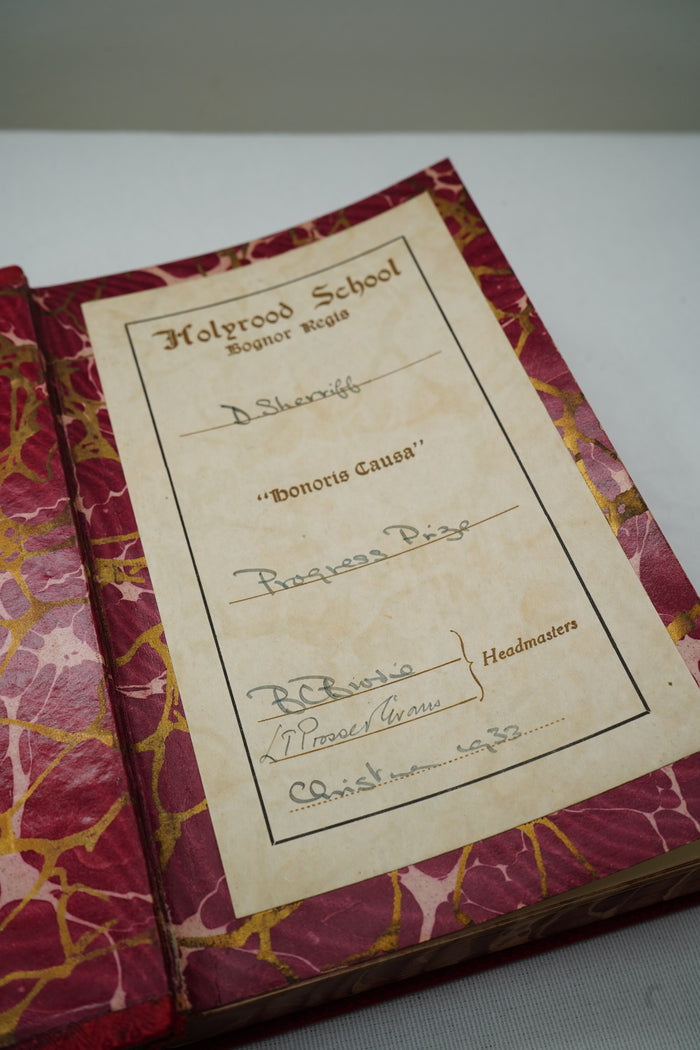 Holyrood School
Bognor Regis
D Sherriff
"Honoris Causa"
Progress Prize
B C Brodie
Headmasters
L T Prosser Evans
Christmas 1933